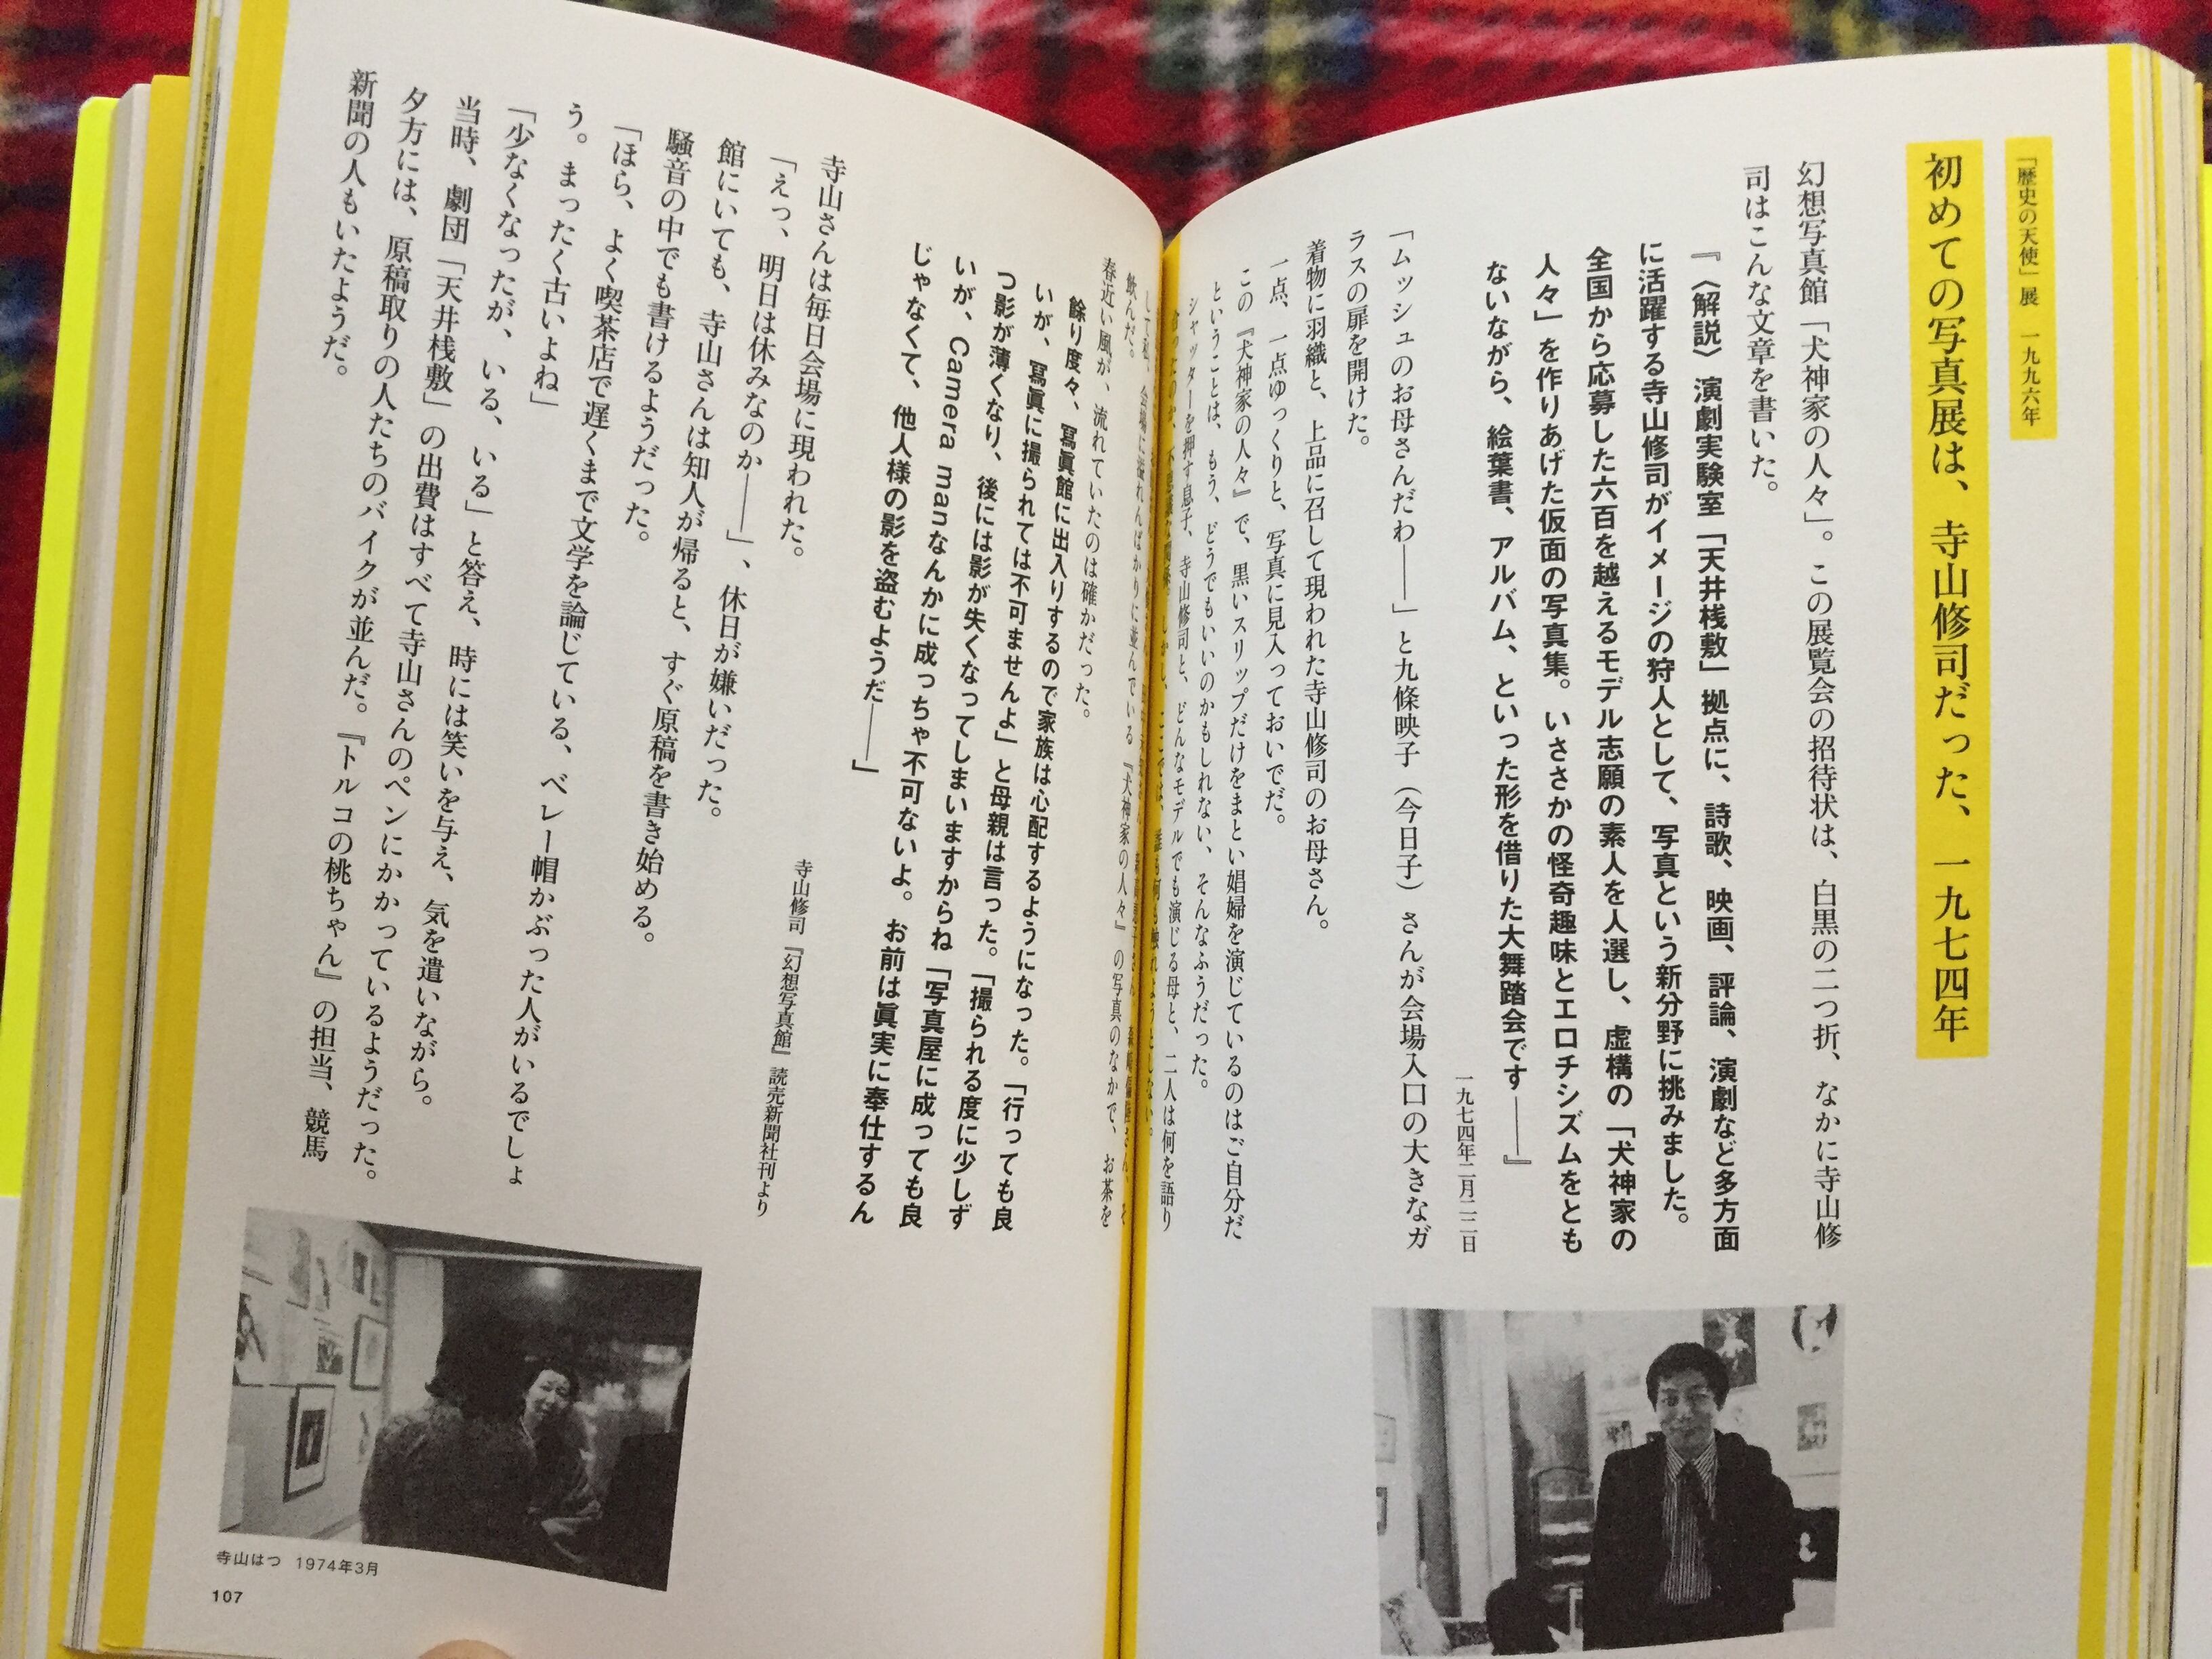 「歴史の天使」展　一九九六年
初めての写真展は、寺山修司だった、一九七四年
幻想写真館「犬神家の人々」。この展覧会の招待状は、白黒の二つ折、なかに寺山修
司はこんな文章を書いた。
『〈解説〉演劇実験室「天井桟敷」拠点に、詩歌、映画、評論、演劇など多方面
に活躍する寺山修司がイメージの狩人として、写真という新分野に挑みました。
全国から応募した六百を越えるモデル志願の素人を人選し、虚構の「犬神家の
人々」を作りあげた仮面の写真集。いささかの怪奇趣味とエロチシズムをとも
ないながら、絵葉書、アルバム、といった形を借りた大舞踏会です——』
一九七四年二月二二日
「ムッシュのお母さんだわ——」と九條映子（今日子）さんが会場入口の大きなガ
ラスの扉を開けた。
着物に羽織と、上品に召して現われた寺山修司のお母さん。
一点、一点ゆっくりと、写真に見入っておいでだ。
この『犬神家の人々』で、黒いスリップだけをまとい娼婦を演じているのはご自分だ
ということは、もう、どうでもいいのかもしれない、そんなふうだった。
シャッターを押す息子、寺山修司と、どんなモデルでも演じる母と、二人は何を語り
会場に溢れんばかりに並んでいる『犬神家の人々』の写真のなかで、お茶を
飲んだ。
春近い風が、流れていたのは確かだった。
餘り度々、寫眞館に出入りするので家族は心配するようになった。「行っても良
いが、寫眞に撮られては不可ませんよ」と母親は言った。「撮られる度に少しず
つ影が薄くなり、後には影が失くなってしまいますからね「写真屋に成っても良
いが、Camera manなんかに成っちゃ不可ないよ。お前は眞実に奉仕するん
じゃなくて、他人様の影を盗むようだ——」
寺山修司『幻想写真館』読売新聞社刊より
寺山さんは毎日会場に現われた。
「えっ、明日は休みなのか——」、休日が嫌いだった。
館にいても、寺山さんは知人が帰ると、すぐ原稿を書き始める。
騒音の中でも書けるようだった。
「ほら、よく喫茶店で遅くまで文学を論じている、ベレー帽かぶった人がいるでしょ
う。まったく古いよね」
「少なくなったが、いる、いる」と答え、時には笑いを与え、気を遣いながら。
当時、劇団「天井桟敷」の出費はすべて寺山さんのペンにかかっているようだった。
夕方には、原稿取りの人たちのバイクが並んだ。『トルコの桃ちゃん』の担当、競馬
新聞の人もいたようだ。
寺山はつ　1974年3月
107